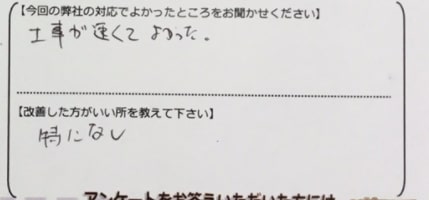 【今回の弊社の対応でよかったところをお聞かせください】
工事が速くてよかった。
【改善した方がいい所を教えて下さい】
特になし
アンケートをお答えいただいた方には